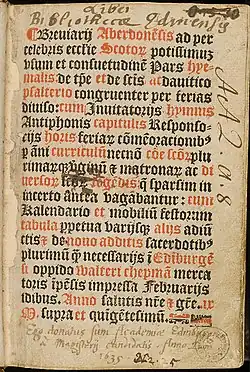 Liber
Bibliothecæ Edinensis
¶Breuiarij Aberdonēsis ad per
celebris eccl'ie Scotoꝝ potissimum
vsum et consuetudinē Pars hye
malis de tpe et de sctis ac dauitico
psalterio congruenter per ferias
diuiso: cum Inuitatorijs hymnis
Antiphonis capitulis Responso-
rijs horis feriaꝝ cōmemoracionibus
p āni curriculū necnō cōe sctoꝝ plu
rimarumqꝫ virginū et matronaꝝ ac di
uersoꝝ legēdis que sparsim in
incerto antea vagabantur: cum
Kalendario et mobiliū festorum
tabula ppetua varijsqꝫ alijs adiū
ctis et de nouo additis sacerdotibus
plurimū qꝫ necessarijs in Edinburgē
si oppido walteri chepmā merca
toris īpēsis impressa Februarijs
idibus. Anno salutis nr̄e et gr̄e. ix
M. supra et quīgētesimū.
Ego donatus sum Academiæ Edinburgenæ
a Magisterij candidatis Anno Dom.
1635
A A 2 a. 8